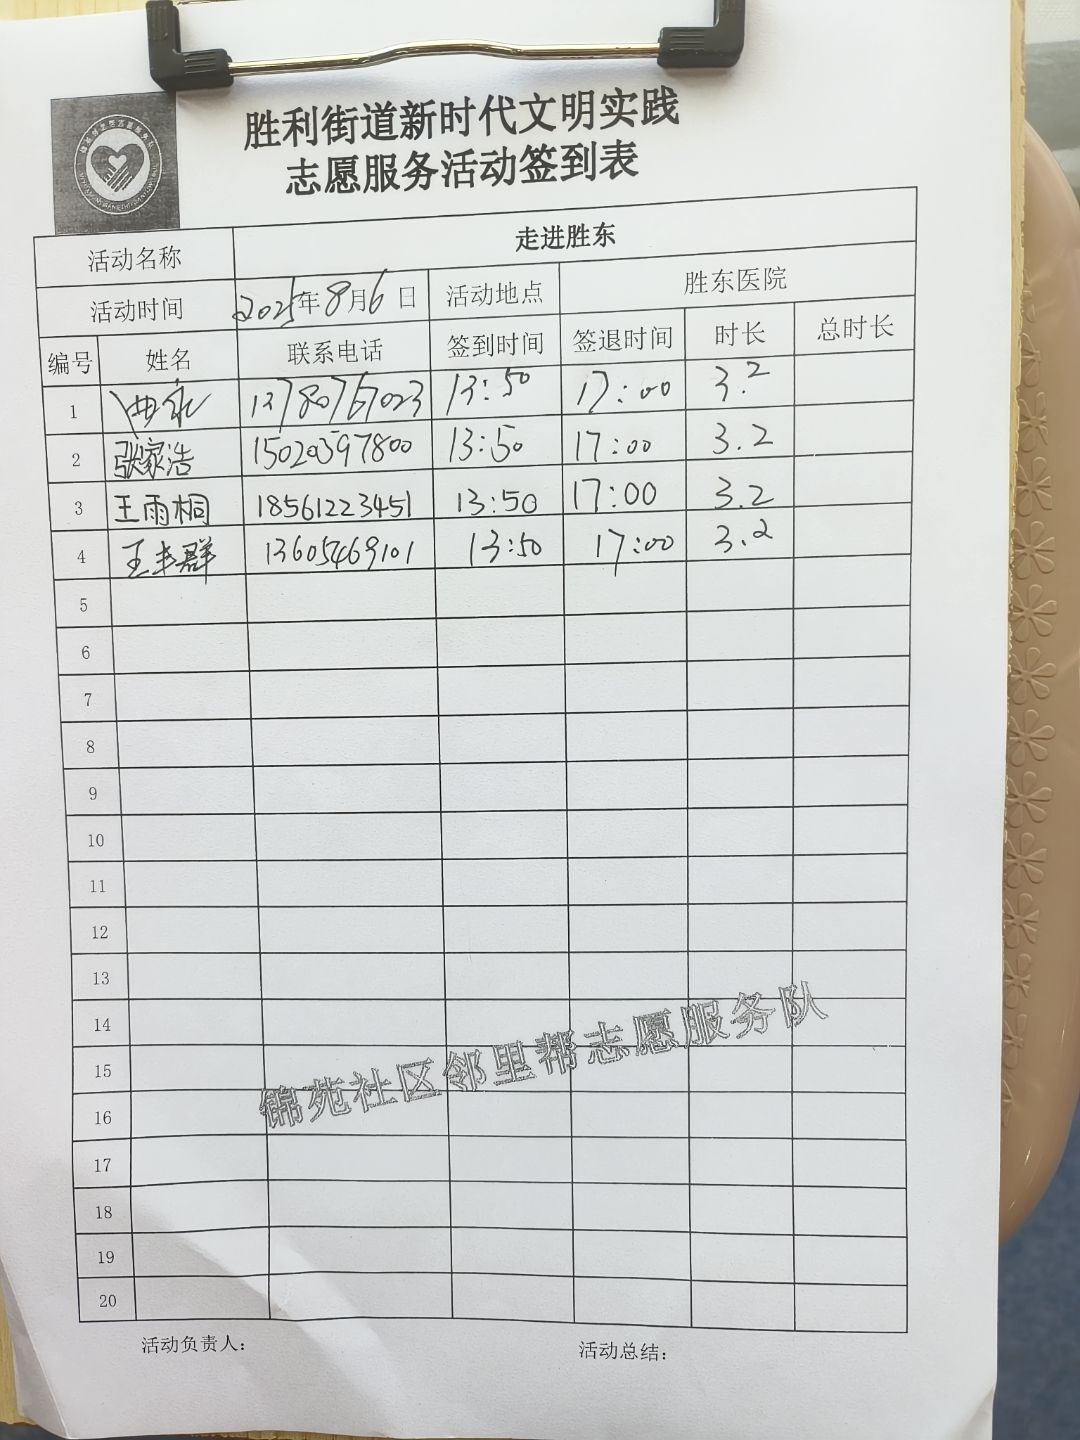 胜利街道新时代文明实践
志愿服务活动签到表
活动名称 走进胜东
活动时间 2025年8月6日 活动地点 胜东医院
编号 姓名 联系电话 签到时间 签退时间 时长 总时长
1 13780767023 13:50 17:00 3.2
2 张家浩 15020597800 13:50 17:00 3.2
3 王雨桐 18561223451 13:50 17:00 3.2
4 王丰群 13605469101 13:50 17:00 3.2
5
6
7
8
9
10
11
12
13
14
15
16
17
18
19
20
锦苑社区邻里帮志愿服务队
活动负责人： 活动总结：